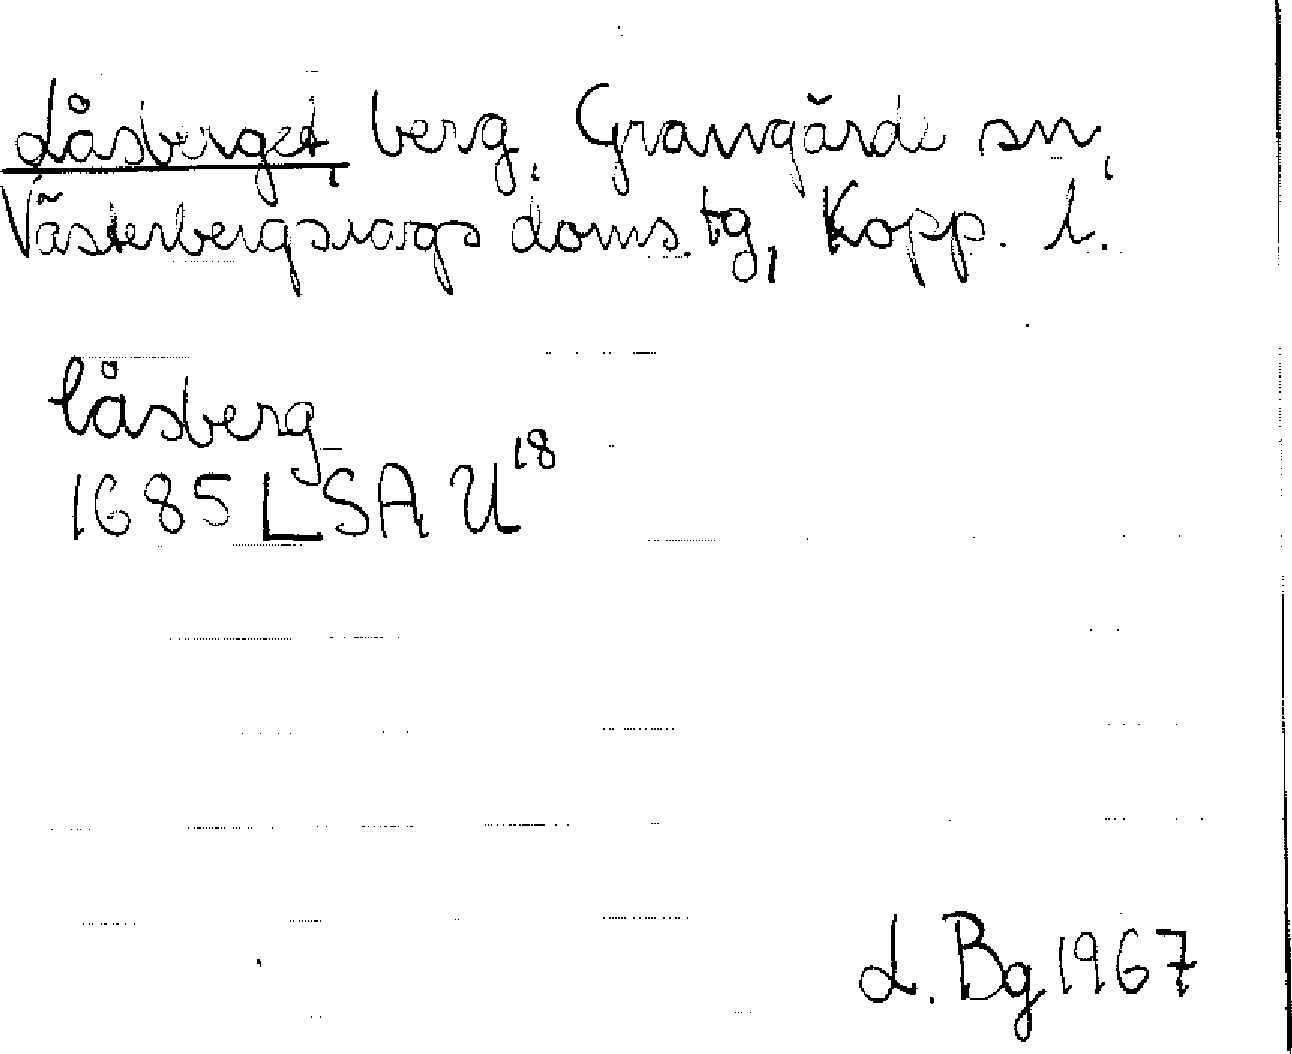 Låsberget, berg, Grangärde sn,
Västerbergslags doms. tg, Kopp. l.
låsberg
1685 LSA U18
L. Bg 1967